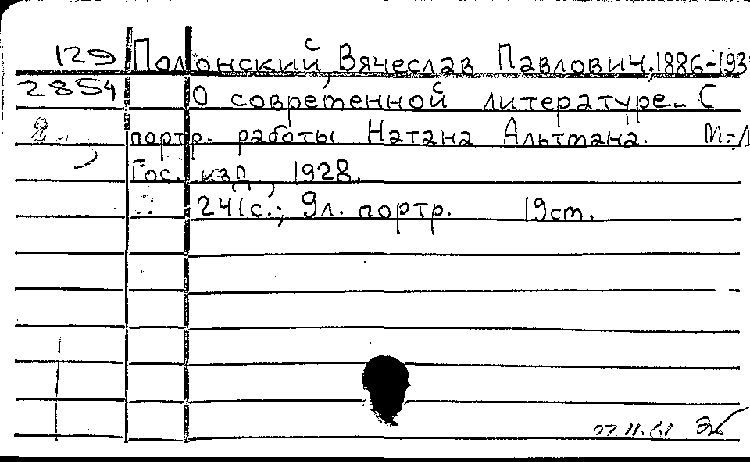 129 Полонский, Вячеслав Павлович, 1886-193
2854 О современной литературе. С
портр. работы Натана Альтмана. М.-Л
Гос. изд., 1928.
241с.; 9л. портр. 19см.